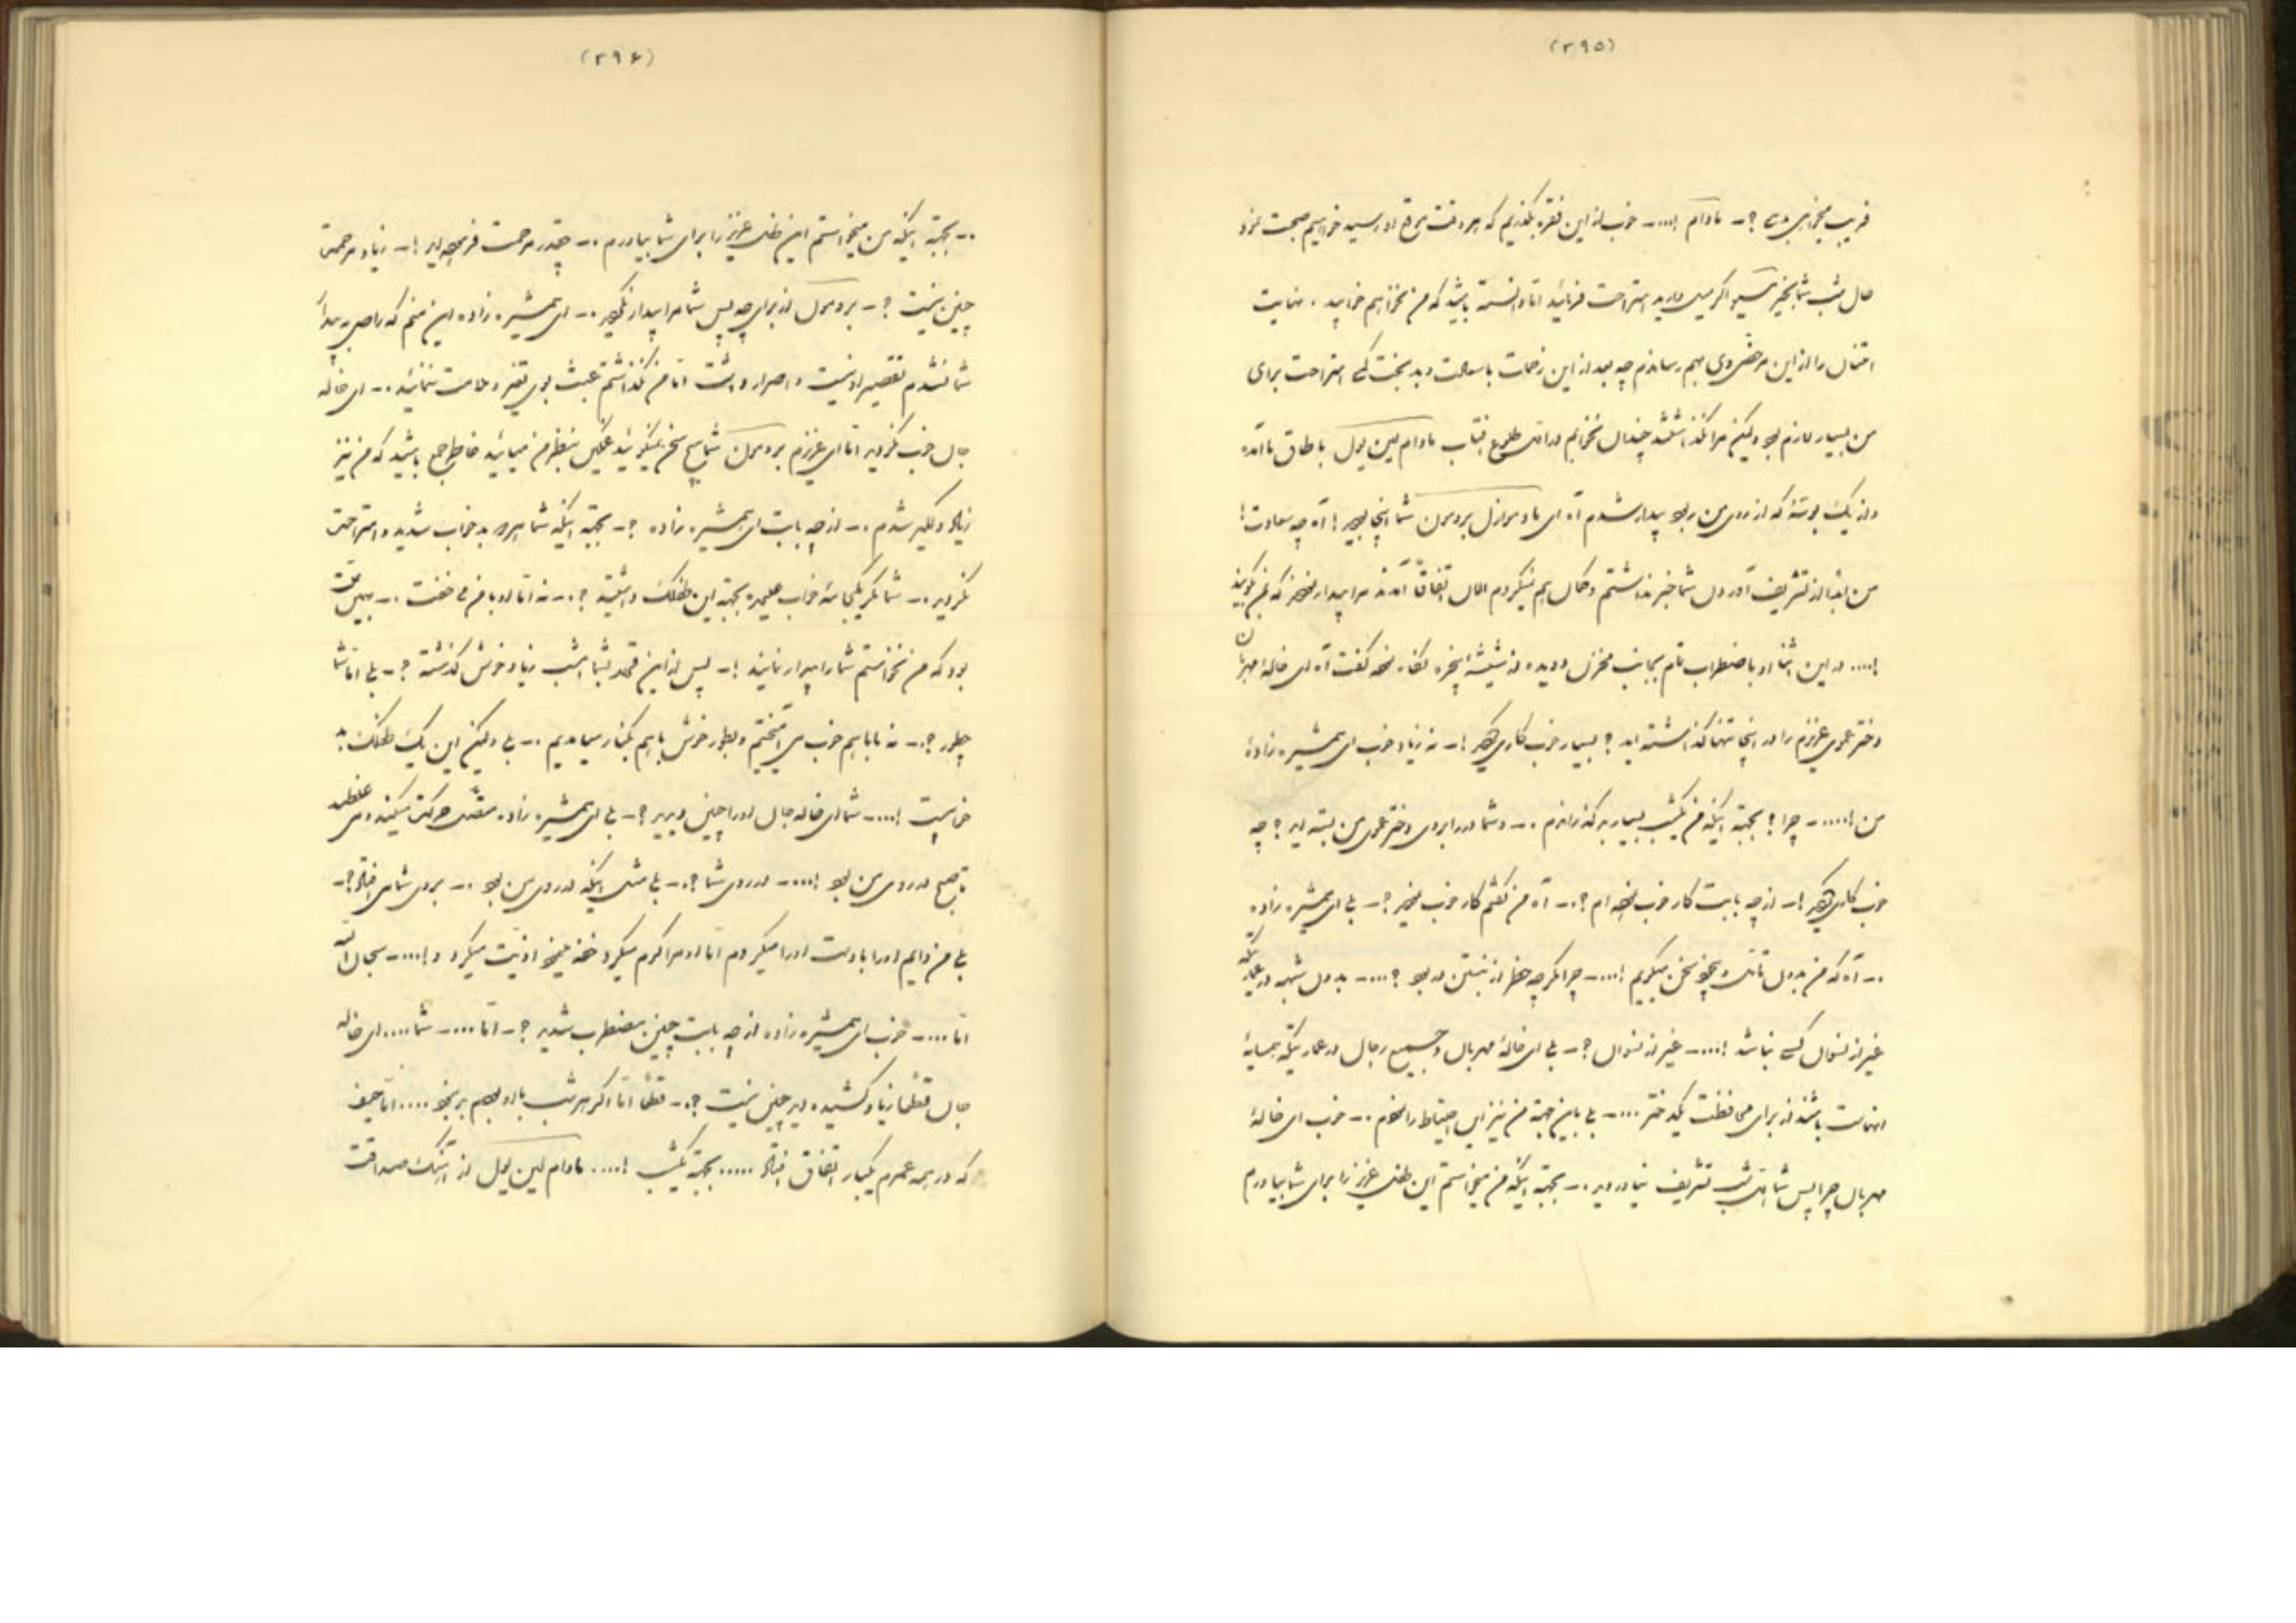 (۲۹۵)
فریب میخواهی دهی ؟ــ مادام !.... ــ خوب از این فقره بگذریم که هر وقت موقع او رسید خواهیم صحبت نمود
حال شب شما بخیر مسیو اگر میل دارید استراحت فرمائید اما دانسته باشید که من نخواهم خوابید . نهایت
امتنان را از این مرخصی بهم رساندم چه بعد از این زحمات با سعادت و بدبختی کمی استراحت برای
من بسیار لازم بود ولیکن مرا نگذاشتند چندان بخوابم در اول طلوع آفتاب مادام لبن یول باطاق ما آمده
و از یک بوسه که از روی من ربود بیدار شدم آه ای مادموازل برومرن شما اینجا بودید ! آه چه سعادت !
من ابدا از تشریف آوردن شما خبر نداشتم و گمان هم نمیکردم الان اتفاقاً آمدند مرا بیدار نمودند که بمن بگویند
!.... در این اثنا او باضطراب تام بجانب مخزن دویده از شیشه پنجره نگاه نموده گفت آه ای خالهٔ مهربان
دختر عموی عزیزم را در اینجا تنها گذاشته اید ؟ بسیار خوب کاری کردید !ــ نه زیاد خوب ای همشیره زادهٔ
من !..... ــ چرا ؟ بجهة اینکه من یکشب بسیار بد گذراندم .ــ و شما در را بروی دختر عموی من بسته اید ؟ چه
خوب کاری کردید !ــ از چه بابت کار خوب نموده ام ؟.ــ آه من گفتم کار خوب نمودید ؟ــ بلی ای همشیره زاده
.ــ آه که من بدون تأمل و بیخود سخن میگویم !.... ــ چرا اگر چه خطر از نبستن در بود ؟.... ــ بدون شبهه در عماریکه
غیر از نسوان کسی نباشد !.... ــ غیر از نسوان ؟ــ بلی ای خالهٔ مهربان و جمیع رجال در عماریکه همسایهٔ
انهاست باشند از برای محافظت یکدختر .... ــ بلی باین جهة من نیز این احتیاط را نمودم .ــ خوب ای خالهٔ
مهربان چرا پس شما اول شب تشریف نیاوردید .ــ بجهة اینکه من میخواستم این طفل عزیز را برای شما بیاورم
(۲۹۶)
.ــ بجهة اینکه من میخواستم این طفل عزیز را برای شما بیاورم .ــ چقدر مرحمت فرموده اید !ــ زیاد مرحمت
چنین نیست ؟ــ برومرن از برای چه پس شما مرا بیدار نکردید .ــ ای همشیره زاده این منم که راضی به بیداری
شما نشدم تقصیر او نیست و اصرار داشت اما من نگذاشتم عبث بوی تغیر و ملامت ننمائید .ــ ای خاله
جان خوب نکردید اما ای عزیزم برومرن شما هیچ سخن نمیگوئید غمگین بنظر من میائید خاطر جمع باشید که من نیز
زیاد دلگیر شدم .ــ از چه بابت ای همشیره زاده ؟ــ بجهة اینکه شما هر دو بد خواب شدید و استراحت
نکردید .ــ شما مگر یکجامه خواب علیحده بجهة این طفلک داشتید ؟.ــ نه اما او با من می خفت .ــ بهمین جهت
بود که من نخواستم شما را بیدار نمایند !ــ پس از این قرار بشما امشب زیاد خوش گذشته ؟ــ بلی اما شما
چطور ؟.ــ نه ما باهم خوب می آمیختیم و بطور خوش باهم بکنار میامدیم .ــ بلی ولیکن این یک طفلک بد
خوابیست !.... ــ شما ای خاله جان او را چنین دیدید ؟ــ بلی ای همشیره زاده متصل حرکت میکند و می غلطد
تا صبح در روی من بود !.... ــ در روی شما ؟.ــ بلی مثل اینکه در روی من بود .ــ بروی شما می افتاد ؟ــ
بلی من دایم او را با دست دور میکردم اما او مرا گرم میکرد خفه مینمود اذیت میکرد و !.... ــ سبحان الله
اما .... ــ خوب ای همشیره زاده از چه بابت چنین مضطرب شدید ؟ــ اما .... ــ شما .... ای خاله
جان قطعا زیاد کشیده اید چنین نیست ؟.ــ قطعاً اما اگر هر شب با او بودم بد بود .... اما حیف
که در همه عمرم یکبار اتفاق افتاد ..... بجهة یکشب !.... مادام لبن یول از آهنگ صداقت